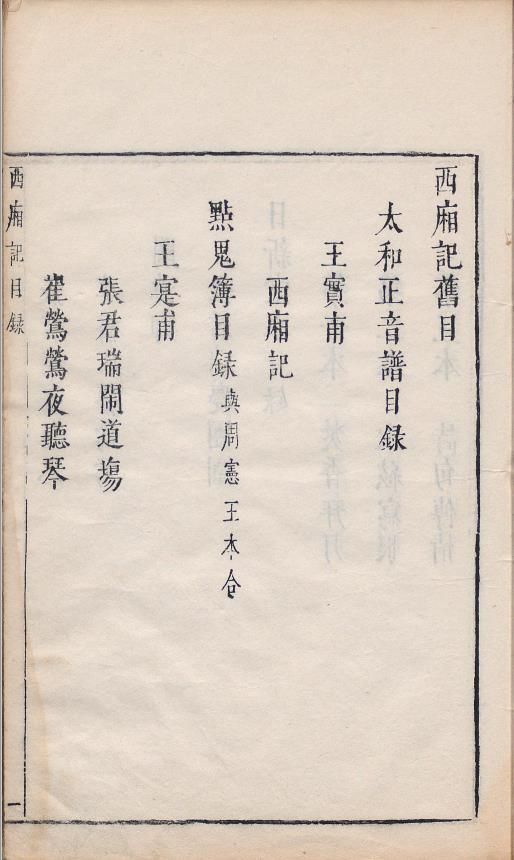 西廂記舊目
太和正音譜目録
王實甫
西廂記
點鬼簿目録與周憲王本合
王寔甫
張君瑞鬧道場
崔鶯鶯夜聽琴
西廂記目録
一